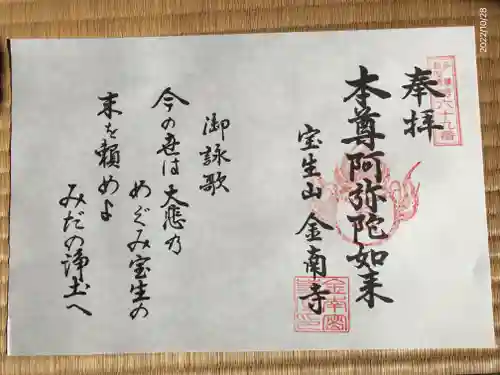 奉拝
本尊阿弥陀如来
宝生山 金南寺
御詠歌
今の世は 大悲乃
めぐみ宝生の
末を頼めよ
みだの浄土へ
六十九番
2022/10/28